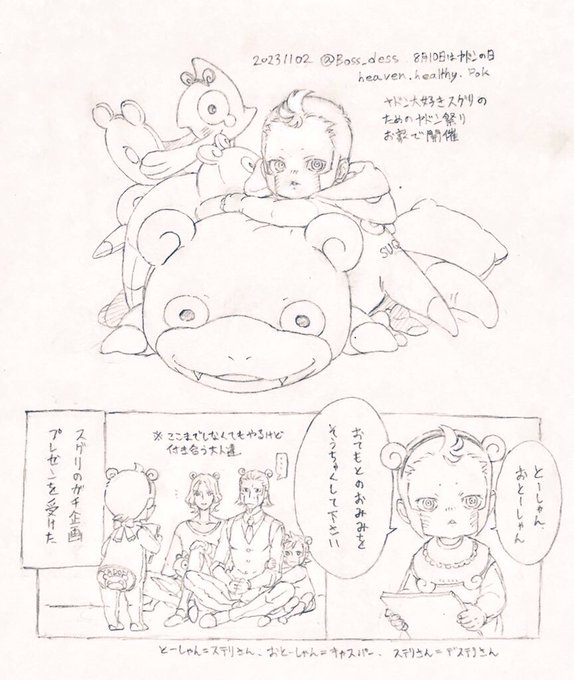 20231102 @Boss_dess 8月10日はヤドンの日
heaven.healthy.Pok
ヤドン大好きスグリの
ためのヤドン祭り
お家で開催
SUG
スグリのガチ企画
プレゼンを受けた
※ここまでしなくてもやるけど
付き合う大人達
とーしゃん
おとーしゃん
おてもとのおみみを
そうちゃくして下さい
とーしゃん=ステリさん、おとーしゃん=キャスパー、ステリさん=デステリさん